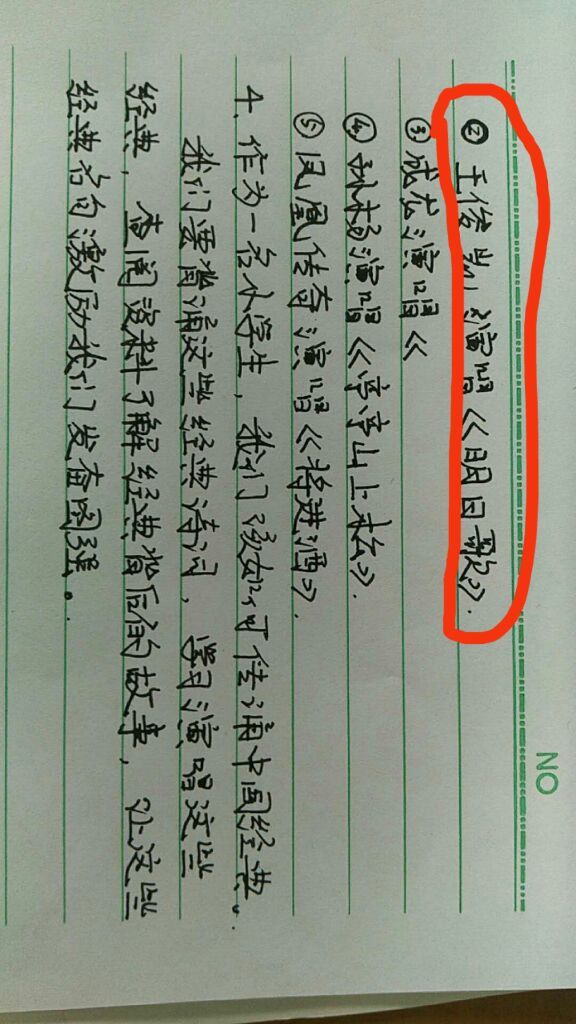 NO
② 王俊凯演唱《明日歌》.
③ 成龙演唱《
④ 孙杨演唱《亭亭山上松》.
⑤ 凤凰传奇演唱《将进酒》.
4、作为一名小学生，我们该如何传诵中国经典。
我们要背诵这些经典诗词，学习演唱这些
经典，查阅资料了解经典背后的故事，让这些
经典名句激励我们发奋图强。